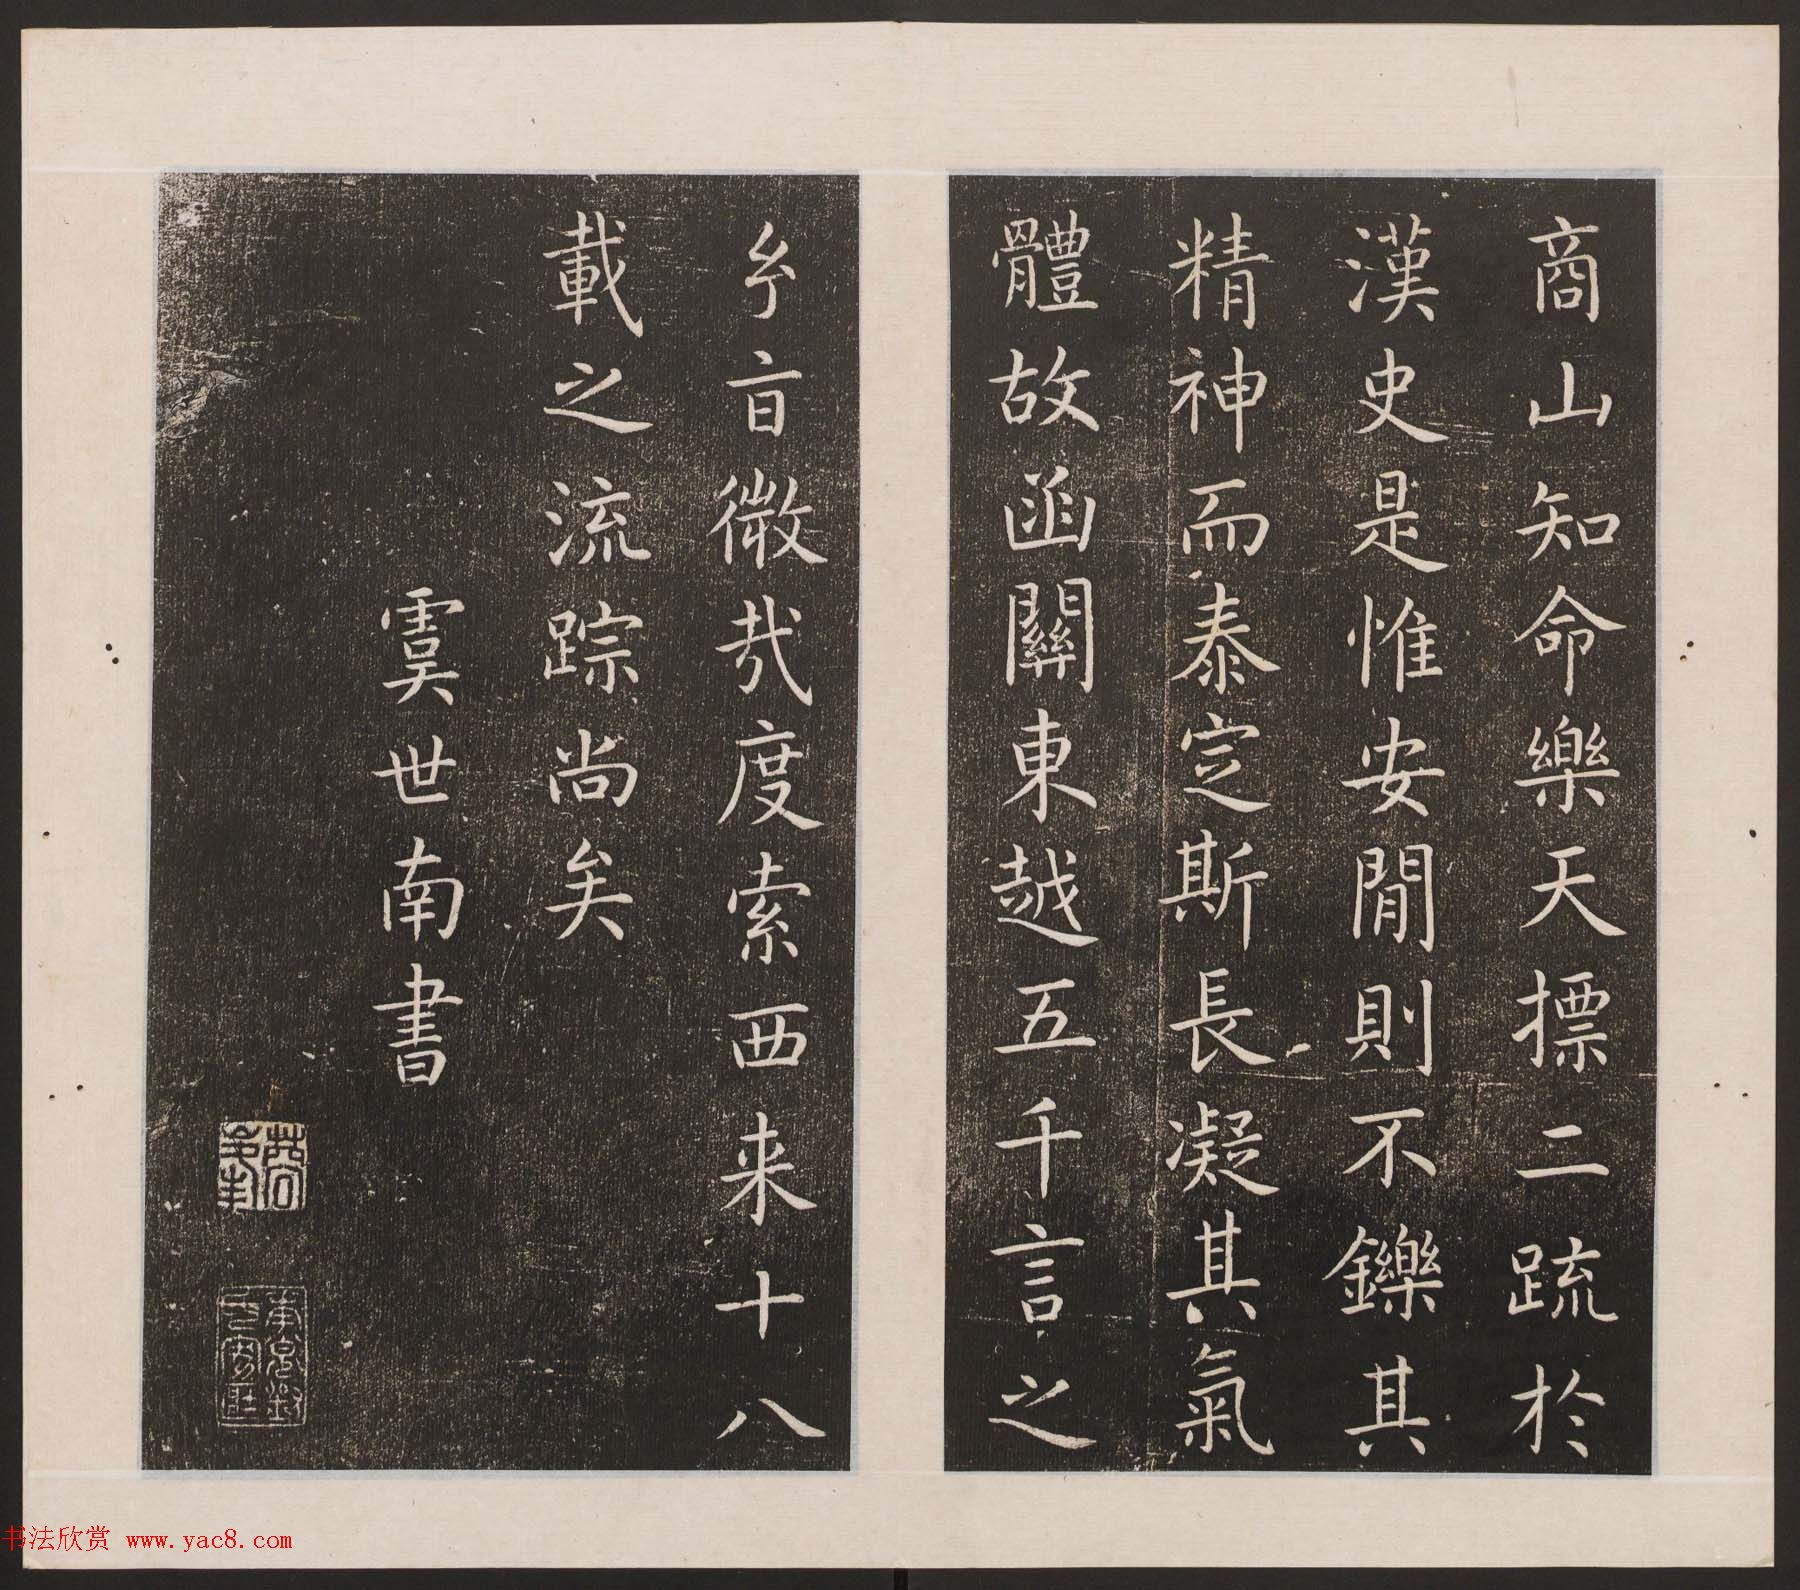 商山知命樂天摽二䟽於
漢史是惟安閒則不鑠其
精神而泰定斯長凝其氣
體故函關東越五千言之
𠂹㫖微哉度索西来十八
載之流踪尚矣
虞世南書
书法欣赏 www.yac8.com